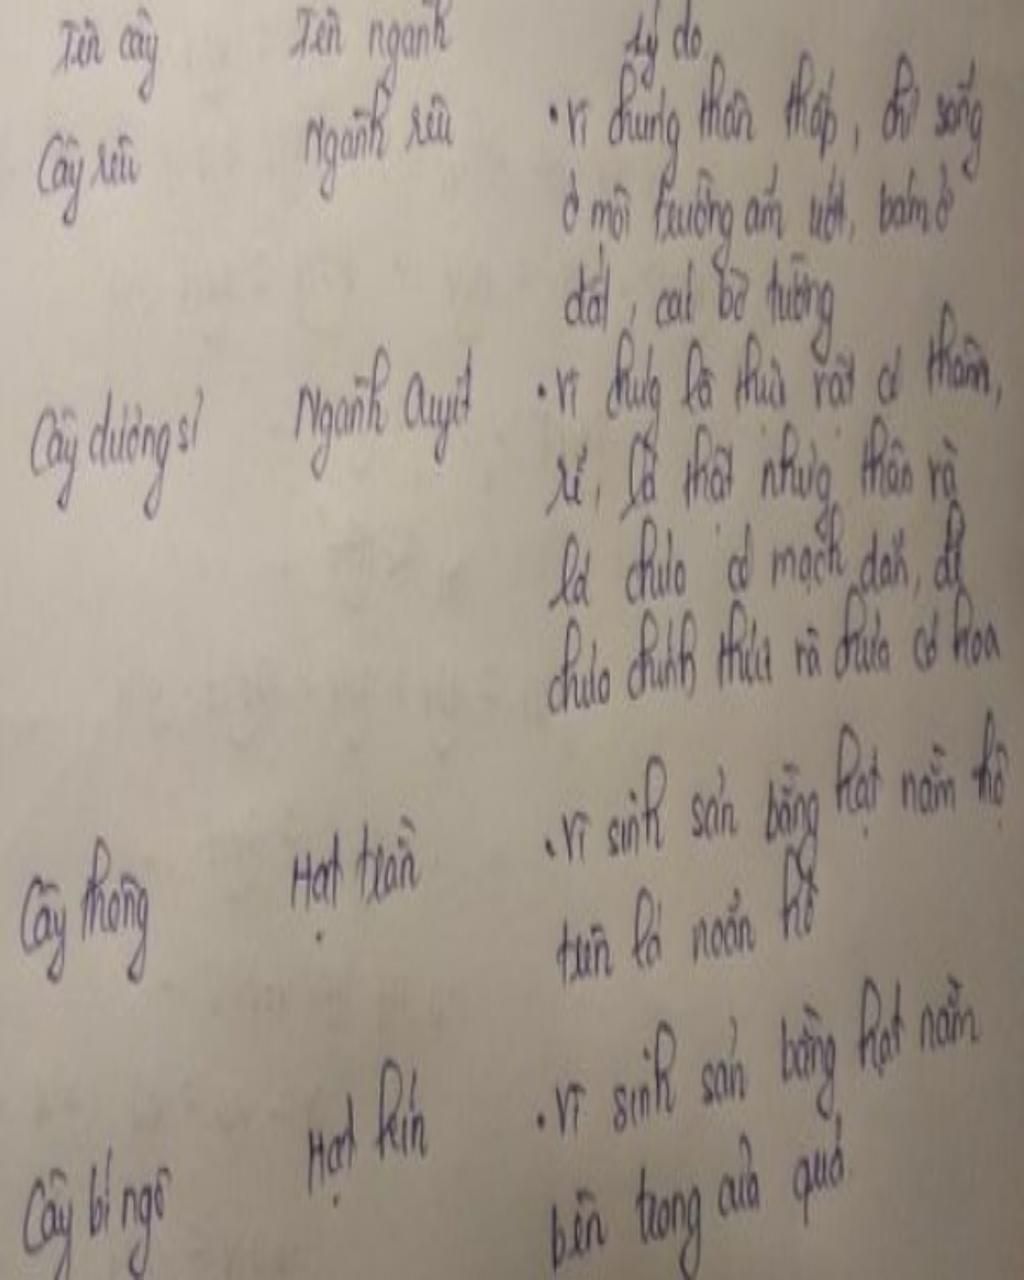 Tên cây Tên ngành Lý do
Cây rêu Ngành rêu • Vì chúng thân thấp, chỉ sống
ở môi trường ẩm ướt, bám ở
đất, cát bờ tường
Cây dương sỉ Ngành Quyết • Vì chúng là thực vật có thân,
rễ, lá thật nhưng thân rễ
lá chưa có mạch dẫn, để
chưa chính thức và chưa có hoa
Cây thông Hạt trần • Vì sinh sản bằng hạt nằm hộ
trên lá noãn hở
Cây bí ngô Hạt kín • Vì sinh sản bằng hạt nằm
bên trong của quả